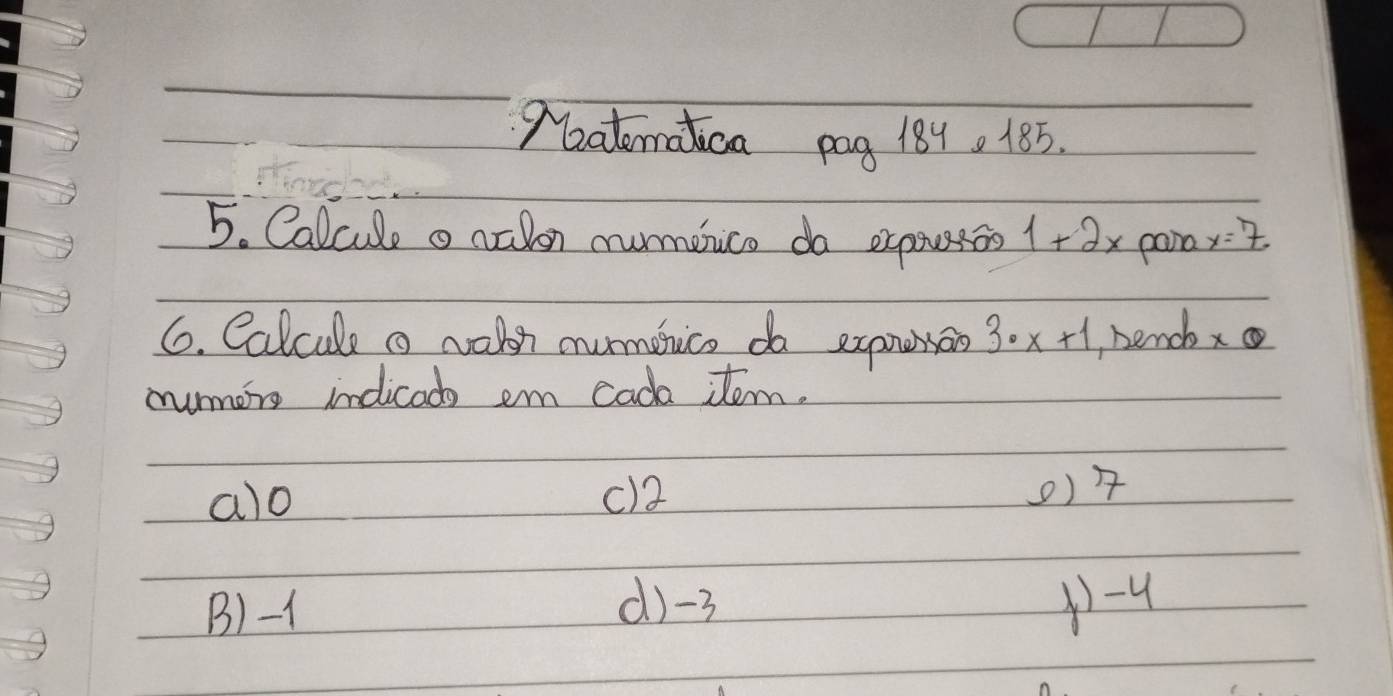 Matematica pag 184 e 185.
5. Calcule o valor numérico da expressão 1 + 2x para x = 7.
6. Calcule o valor numérico da expressão 3 • x + 1, sendo x o
numéro indicado em cada item.
a) 0 c) 2 e) 7
B) -1 d) -3 f) -4